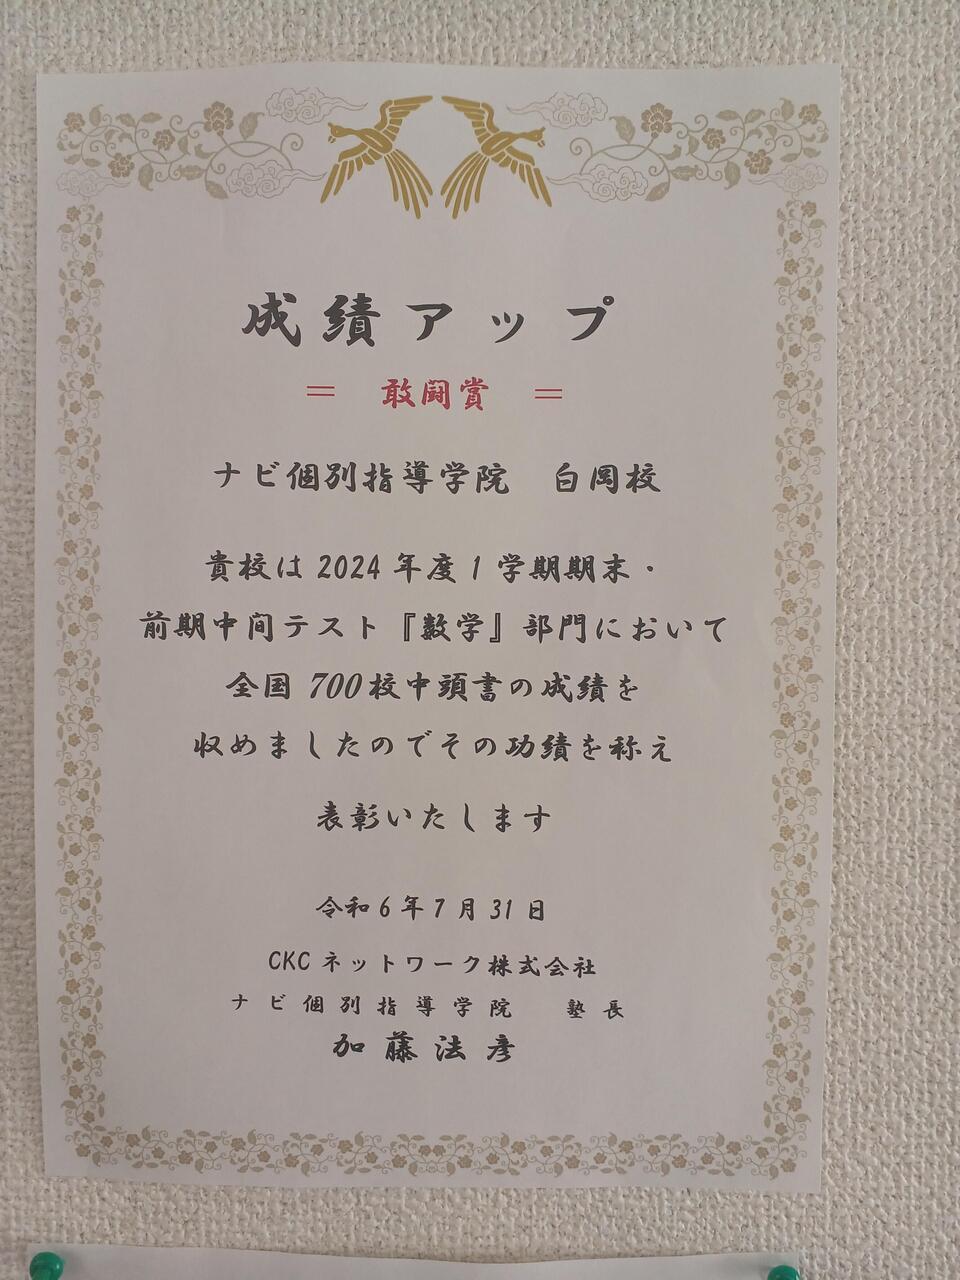 成績アップ
＝　敢闘賞　＝
ナビ個別指導学院　白岡校
貴校は 2024 年度 1 学期期末・
前期中間テスト『数学』部門において
全国 700校中頭書の成績を
収めましたのでその功績を称え
表彰いたします
令和 6 年 7 月 31 日
CKC ネットワーク株式会社
ナビ個別指導学院　塾長
加藤法彦